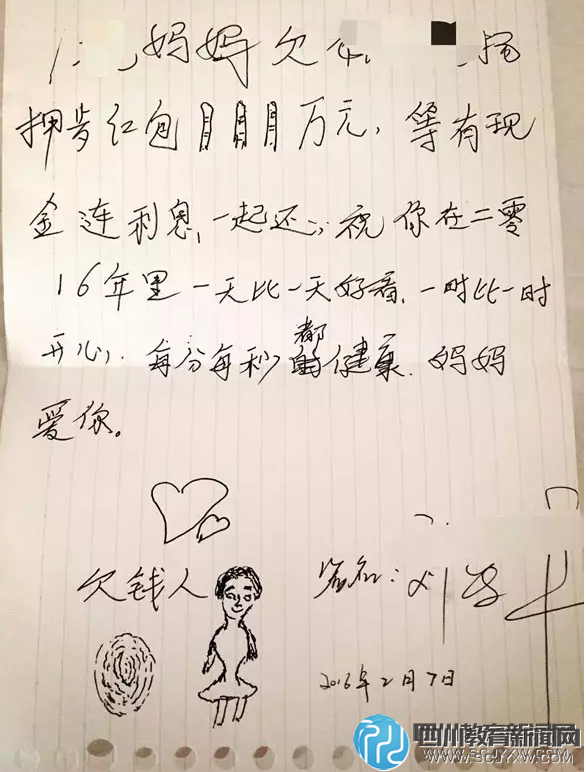 妈妈欠
押岁红包月月月万元，等有现
金连利息，一起还，祝你在二零
16年里一天比一天好看，一时比一时
开心，每分每秒都健康，妈妈
爱你。
欠钱人
签名：刘
2016年2月7日
四川教育新闻网
WWW.SCJYXW.COM